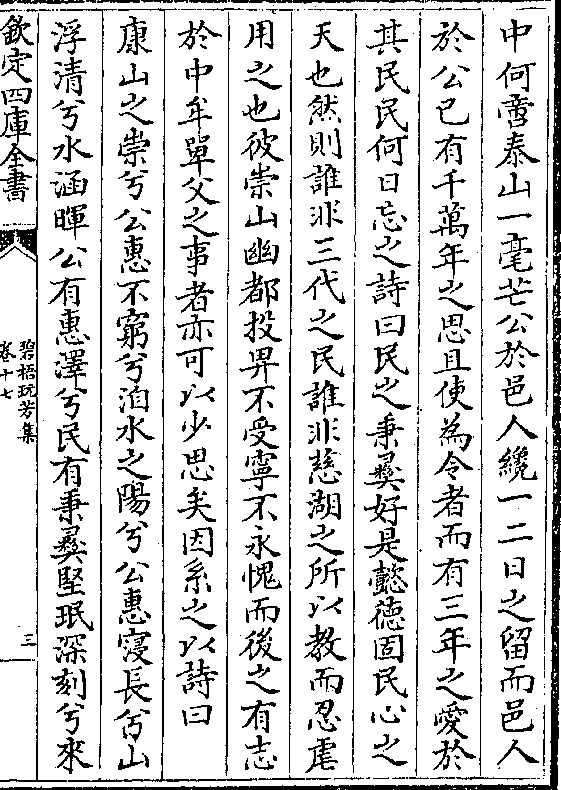 中何啻泰山一毫芒公於邑人纔一二日之留而邑人
於公已有千萬年之思且使為令者而有三年之愛於
其民民何日忘之詩曰民之秉彞好是懿徳固民心之
天也然則誰非三代之民誰非慈湖之所以教而忍虐
用之也彼崇山幽都投畀不受寧不永愧而後之有志
於中牟單父之事者亦可以少思矣因系之以詩曰
康山之崇兮公惠不窮兮洎水之陽兮公惠寖長兮山
浮清兮水涵暉公有惠澤兮民有秉彞堅珉深刻兮來
欽定四庫全書
碧梧玩芳集
卷十七
三